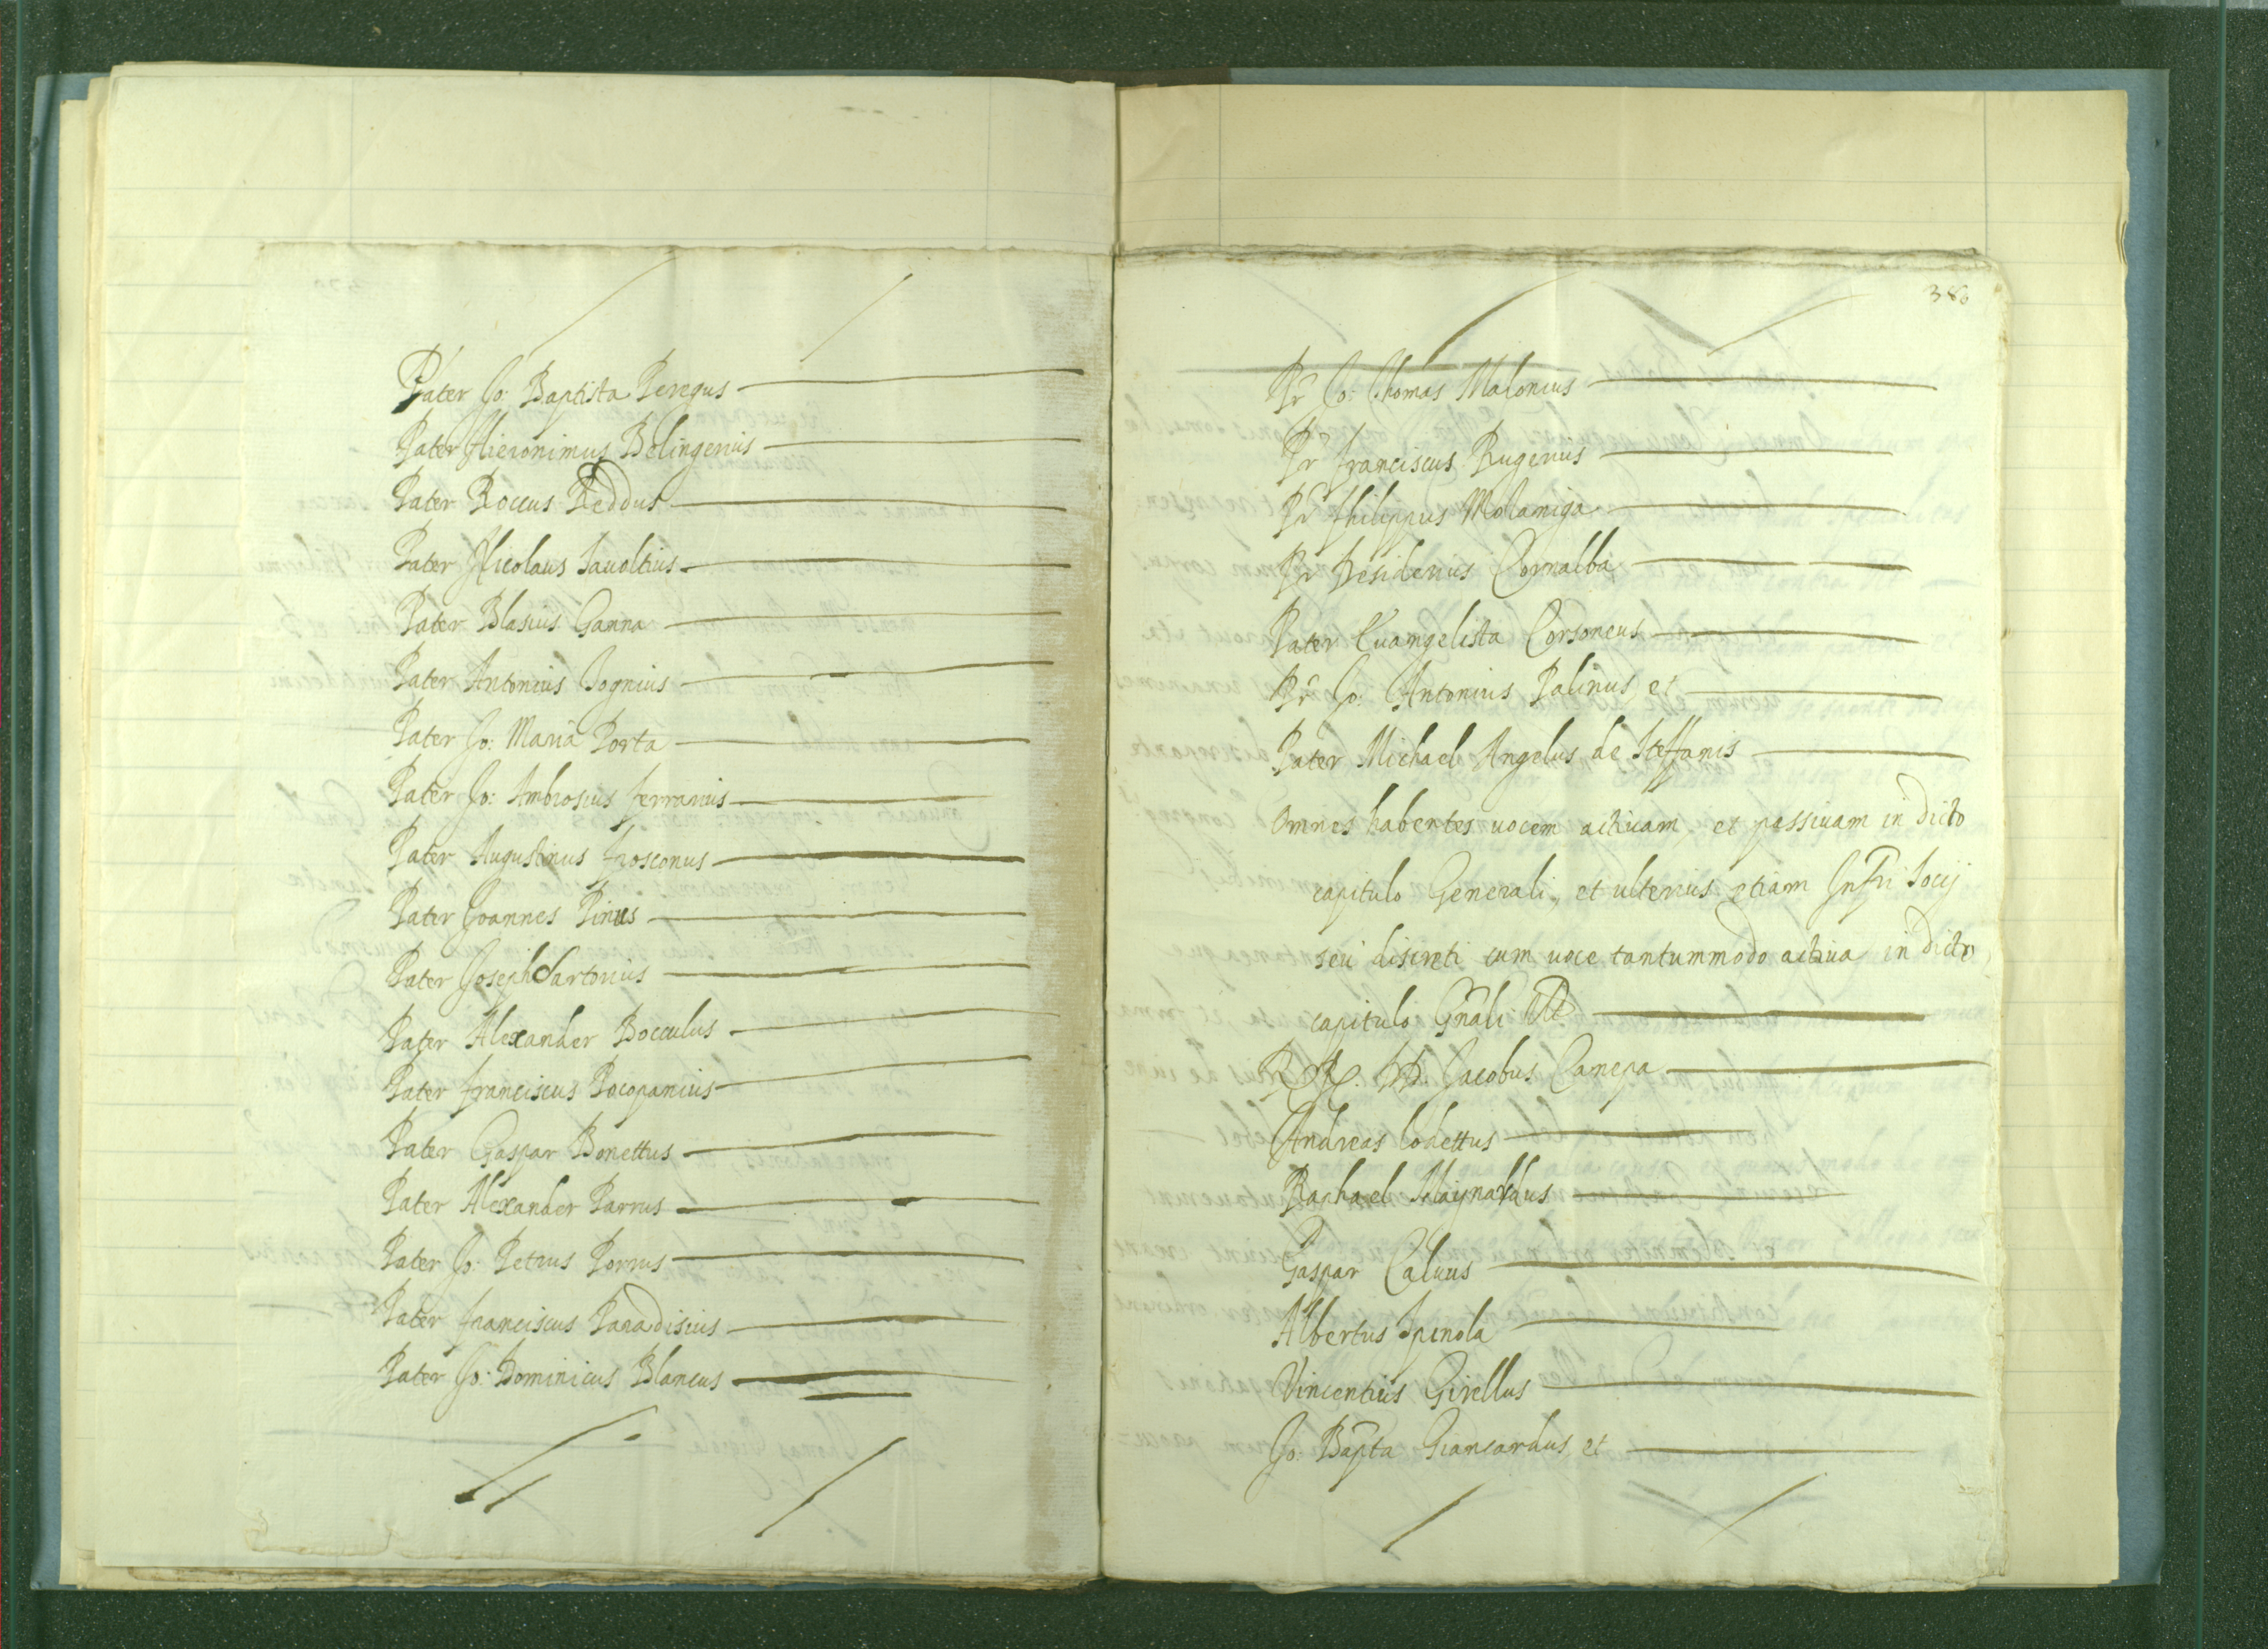 Pater Jo: Baptista Peregus
Pater Hieronimus Belingerius
Pater Roccus Reddus
Pater Nicolaus Sauoltius
Pater Blasius Ganna
Pater Antonius Bognius
Pater Jo: Maria Porta
Pater Jo: Ambrosius ferrarius
Pater Augustinus frosconus
Pater Joannes Pinus
Pater Joseph Sartorius
Pater Alexander Bocculus
Pater franciscus Bocopanius
Pater Gaspar Bonettus
Pater Alexander Parrus
Pater Jo: Petrus Porrus
Pater franciscus Paradisius
Pater Jo: Dominicus Blancus
380
Pr Jo: Thomas Malonius
Pr franciscus Rugerius
Pr Philippus Molaniga
Pr Desiderius Cornalba
Pater Euangelista Corsoneus
Pr Jo: Antonius Palinus, et
Pater Michael Angelus de Steffanis
Omnes habentes uocem actiuam, et passiuam in dicto
capitulo Generali, et ulterius etiam Infri Socij
seu discreti cum uoce tantummodo actiua in dicto
capitulo Gnali
RR. PP. Jacobus Canepa
Andreas Codettus
Raphael Maynardus
Gaspar Caluus
Albertus Spinola
Vincentius Girellus
Jo: Bapta Giancardus, et